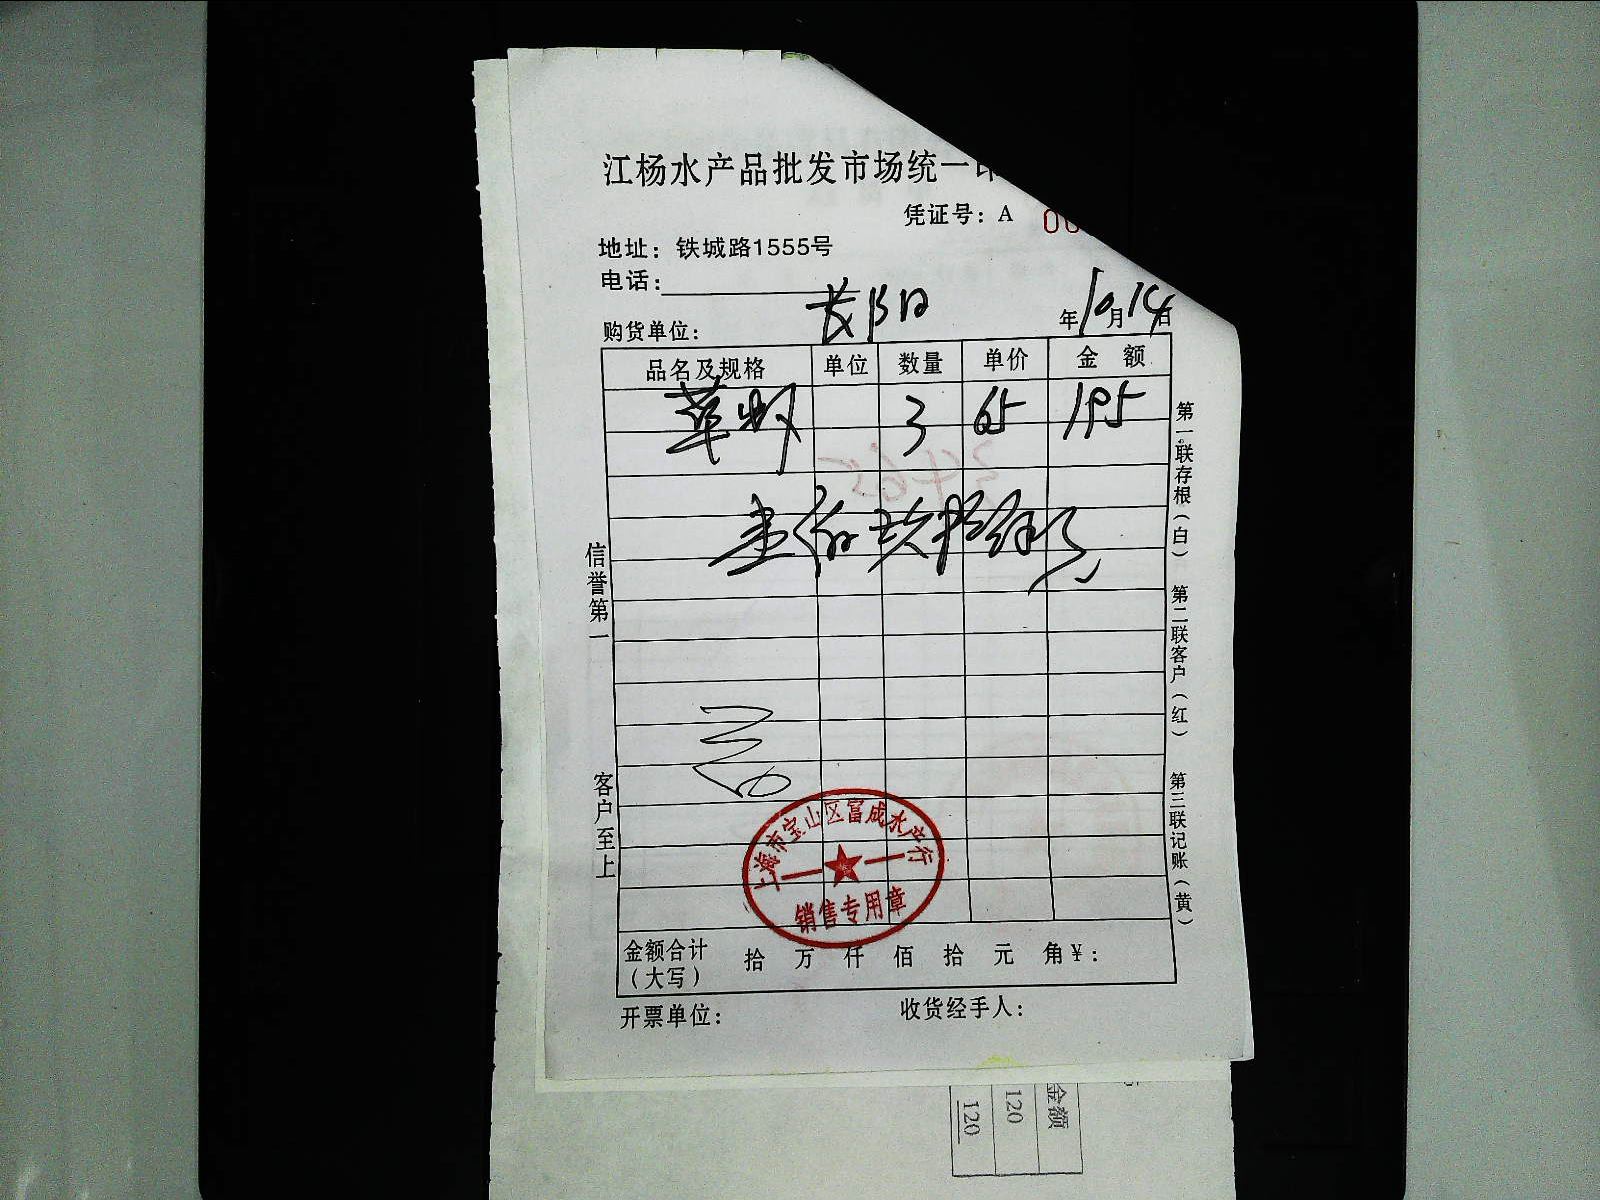 江杨水产品批发市场统一
凭证号：A 00
地址：铁城路1555号
电话：
购货单位：
年10月14日
品名及规格 单位 数量 单价 金额
草虾 3 65 195
信誉第一
客户至上
第一联存根（白）
第二联客户（红）
第三联记账（黄）
上海市宝山区富成水产行
销售专用章
金额合计（大写） 拾 万 仟 佰 拾 元 角 ¥：
开票单位：
收货经手人：
金额
120
120